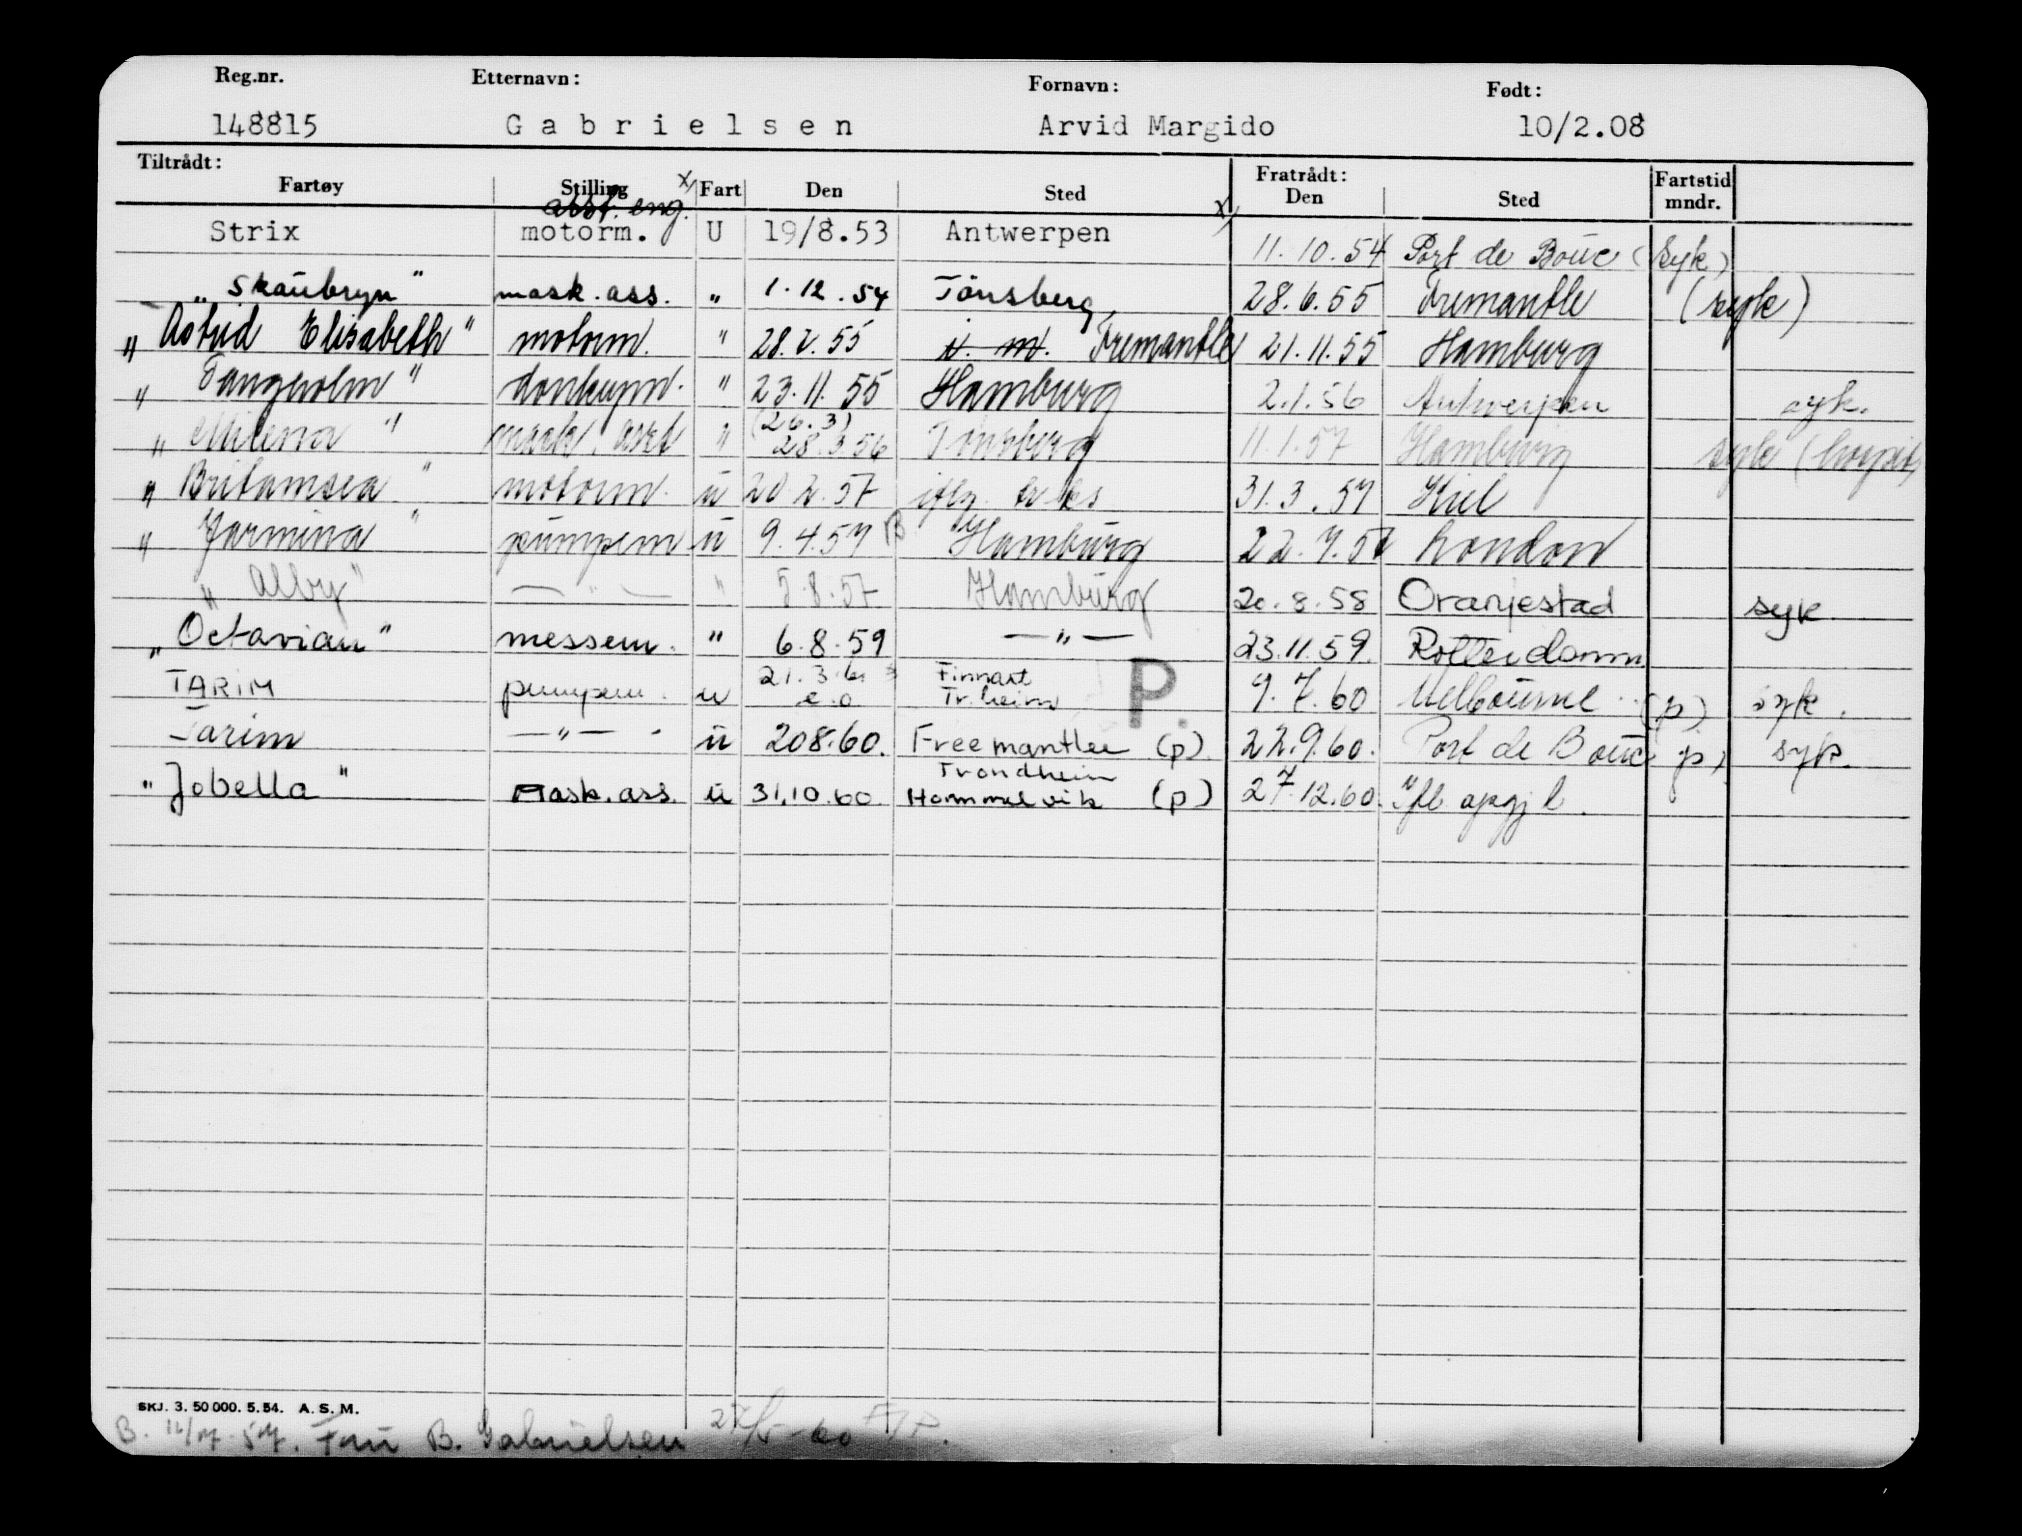 Reg.nr. Etternavn: Fornavn: Født:
148815 Gabrielsen Arvid Margido 10/2.08
Tiltrådt: Fratrådt:
Fartøy Stilling x/ Fart Den Sted Den Sted Fartstid mndr.
asst. eng.
Strix motorm. U 19/8.53 Antwerpen x/ 11.10.54 Port de Bouc (syk)
"Skaubryn" mask.ass. " 1.12.54 Tönsberg 28.6.55 Fremantle (syk)
"Astrid Elisabeth" motorm. " 28.7.55 Fremantle 21.11.55 Hamburg
"Tangholm" donkeym. " 23.11.55 Hamburg 2.1.56 Antwerpen syk.
(26.3)
"Milena" mask. asst " 28.3.56 Tönsberg 11.1.57 Hamburg syk (hospit)
"Britamsea" motorm. u 20.2.57 iflg. 31.3.57 Kiel
"Jarmina" pumpem u 9.4.57 B Hamburg 22.7.57 London
"Alby" — " — " 5.8.57 Hamburg 20.8.58 Oranjestad syk
"Octavian" messem. " 6.8.59 — " — 23.11.59. Rotterdamm
21.3.60 Finnart P.
TARIM pumpem. u e.o Tr.heim 9.7.60 Melbourne (p) syk.
Tarim — " — u 20.8.60. Freemantlee (p) 22.9.60. Port de Bouc p) syk.
Trondheim
"Jobella" Mask.ass. u 31.10.60. Hommelvik (p) 27.12.60. Ifl oppgj
SKJ. 3. 50 000. 5. 54. A. S. M.
B. 12/7.57. Fru B. Gabrielsen